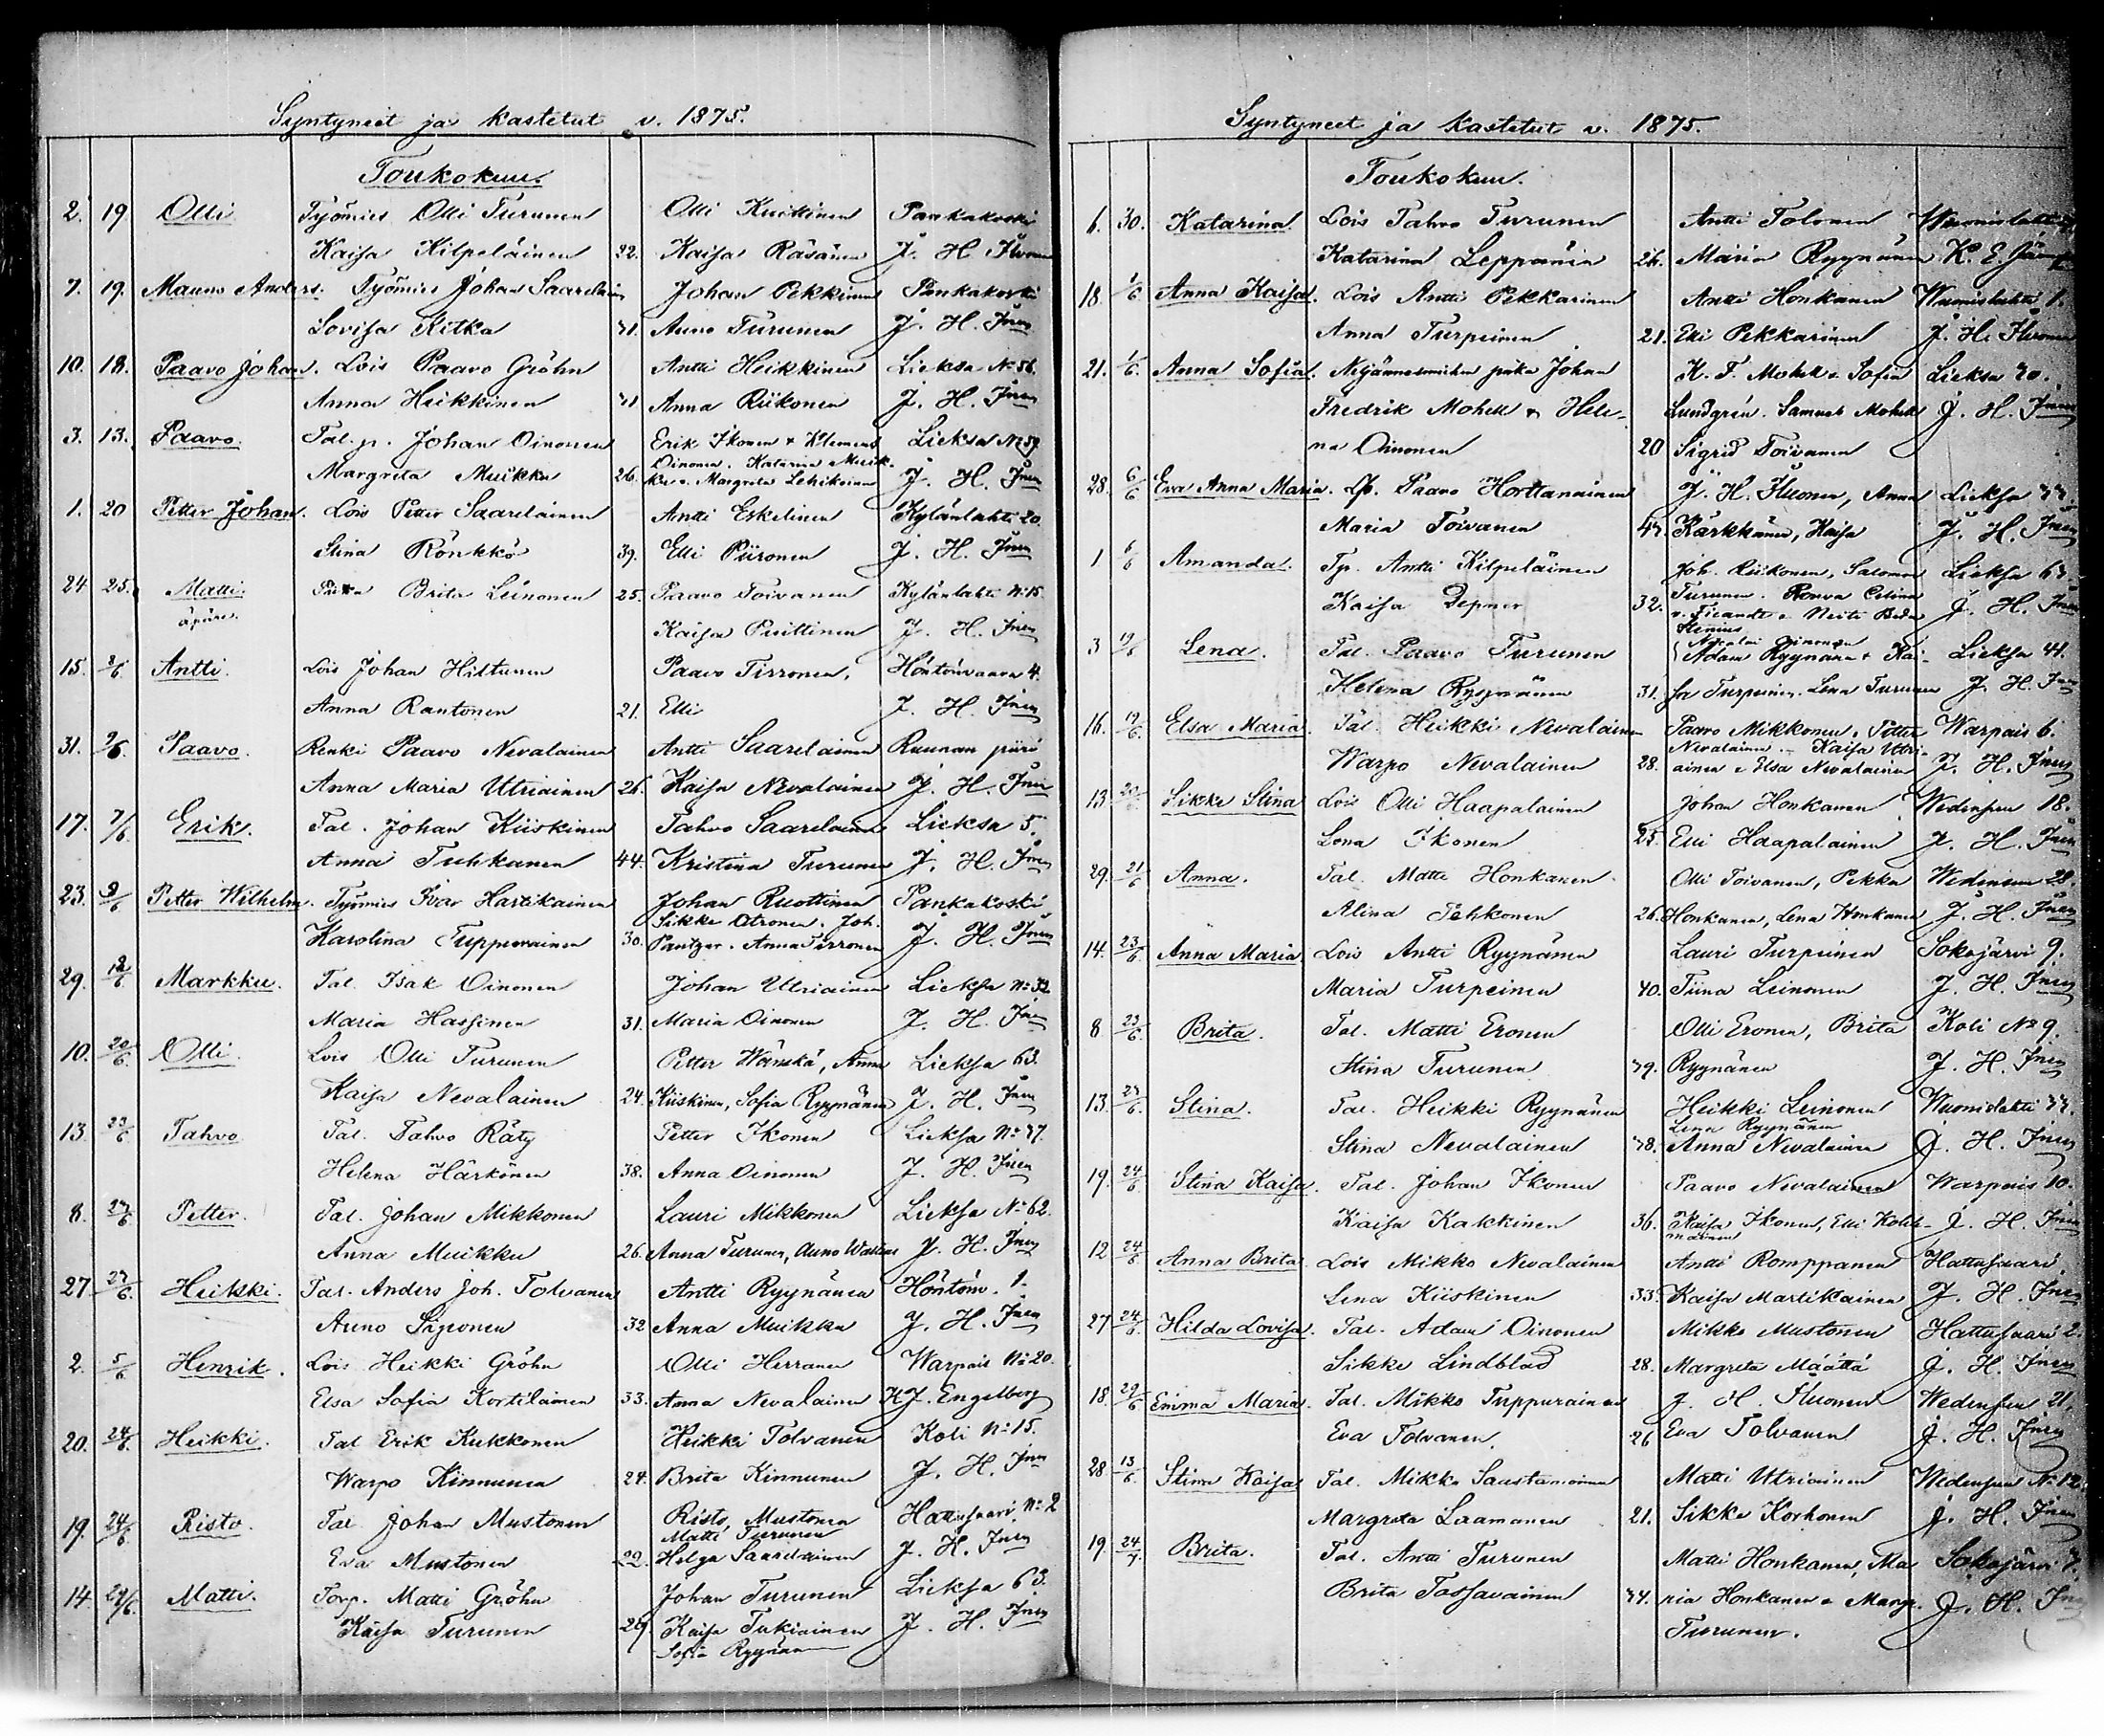 Syntyneet ja kastetut v. 1875.
Toukokuu.
2. 19 Olli Työmies Olli Turunen Olli Kuikinen Pankakoski
Kaisa Kilpeläinen 22. Kaisa Räsänen J. H.
7. 19. Mauno Anders. Työmies Johan Saarelain Johan Pekkinen Pankakoski
Lovisa Kitka 31. Auno Turunen J. H. Inen
10. 18. Paavo Johan. Lois Paavo Gröhn Antti Heikkinen Lieksa No 56.
Anna Heikkinen 31 Anna Riikonen J. H. Inen
3. 13. Paavo. Tal. p. Johan Oinonen Erik Ikonen & Klemens Lieksa No 59
Oinonen. Katarina Muik-
Margreta Muikku 26. ku & Margreta Lehikoinen J. H. Inen
1. 20 Petter Johan. Lois Petter Saarelainen Antti Eskelinen Kylänlahti 20.
Stina Rönkkö 39. Elli Piironen J. H. Inen
24 25. Matti. Brita Leinonen 25. Paavo Toivanen Kylänlahti No 15.
äpäre. Kaisa Puittinen J. H. Inen
15. 3/6. Antti. Lois Johan Hiltunen Paavo Tirronen, Höntönvaara 4.
Anna Rautonen 21. Elli J. H. Inen
31. 7/6. Paavo. Renki Paavo Nevalainen Antti Saarelainen Ruunan piiri
Anna Maria Utriainen 26. Kaisa Nevalainen J. H. Inen
17. 7/6. Erik. Tal. Johan Kiiskinen Tahvo Saarelainen Lieksa 5.
Anna Tuhkanen 44. Kristina Turunen J. H. Inen
23. 9/6 Petter Wilhelm. Työmies Ivar Hartikainen Johan Ruottinen Pankakoski
Sikke Otronen. Joh.
Karolina Tuppurainen 30. Pantzar. Anna Tirronen J. H. Inen
29. 12/6 Markku. Tal. Isak Oinonen Johan Utriainen Lieksa No 32
Maria Hassinen 31. Maria Oinonen J. H. Inen
10. 20/6. Olli. Lois Olli Turunen Petter Wänskä, Anna Lieksa 63.
Kaisa Nevalainen 24. Kiiskinen, Sofia Ryynänen J. H. Inen
13. 23/6 Tahvo Tal. Tahvo Räty Petter Ikonen Lieksa No 37.
Helena Härkönen 38. Anna Oinonen J. H. Inen
8. 27/6 Petter. Tal. Johan Mikkonen Lauri Mikkonen Lieksa No 62.
Anna Muikku 26. Anna Turunen, Auno J. H. Inen
27 27/6. Heikki. Tal. Anders Joh. Tolvanen Antti Ryynänen Höntönv. 1.
Auno Siponen 32 Anna Muikku J. H. Inen
2. 5/6 Henrik. Lois Heikki Gröhn Olli Herranen Warpais No 20.
Elsa Sofia Kortelainen 33. Anna Nevalainen K J. Engelberg
20. 24/6. Heikki. Tal Erik Kukkonen Heikki Tolvanen Koli No 15.
Warpo Kinnunen 24. Brita Kinnunen J. H. Inen
19. 24/6. Risto. Tal Johan Mustonen Risto Mustonen Hattusaari No 2
Matti Turunen
Eva Mustonen 22. Helga Saarelainen J. H. Inen
14. 24/6. Matti. Torp. Matti Gröhn Johan Turunen Lieksa 63.
Kaisa Turunen 29 Kaisa Tukiainen J. H. Inen
Sofia Ryynänen
Syntyneet ja kastetut v. 1875.
Toukokuu.
6. 30. Katarina. Lois Tahvo Turunen Antti Tolonen
Katarina Leppänen 26. Maria Ryynänen K. E.
18. 1/6 Anna Kaisa. Lois Antti Pekkarinen Antti Honkanen Wuonislahti 1.
Anna Turpeinen 21. Elli Pekkarinen J. H.
21. 1/6. Anna Sofia. Johan K. F. Mohell & Sofia Lieksa 70.
Fredrik Mohell & Hele- Lundgrén. Samuel Mohell J. H. Inen
na Oinonen 20 Sigrid Toivanen
28. 6/6 Eva Anna Maria. Lp. Paavo Horttanainen J. H. Iluonen, Anna Lieksa 37.
Maria Toivanen 43. Kärkkänen, Kaisa J. H. Inen
1 6/6 Amanda. Tp. Antti Kilpeläinen Joh. Riikonen, Salomon Lieksa 63.
Turunen. Rouva Celina
Kaisa Depner 32. J. H. Inen
3 19/6 Lena. Tal. Paavo Turunen Nikolai Oinonen
Adam Ryynänen & Kai- Lieksa 41.
Helena Ryynänen 31. sa Turpeinen. Lena Turunen J. H. Inen
16. 19/6. Elsa Maria. Tal. Heikki Nevalainen Paavo Mikkonen. Petter Warpais 6.
Nevalainen. Kaisa Utri-
Warpo Nevalainen 28. ainen & Elsa Nevalainen J. H. Inen
13 20/6 Sikke Stina Lois Olli Haapalainen Johan Honkanen Wedensuu 18.
Lena Ikonen 25. Elli Haapalainen J. H. Inen
29. 21/6 Anna. Tal. Matti Honkanen Olli Toivanen, Pekka Wedensuu 28.
Alina Pehkonen 26. Honkanen, Lena Honkanen J. H. Inen
14. 23/6. Anna Maria Lois Antti Ryynänen Lauri Turpeinen Sokojärvi 9.
Maria Turpeinen 40. Tiina Leinonen J. H. Inen
8 23/6. Brita. Tal. Matti Eronen Olli Eronen, Brita Koli No 9.
Stina Turunen 39. Ryynänen J. H. Inen
13. 27/6. Stina. Tal. Heikki Ryynänen Heikki Leinonen Wuonislahti 37.
Lena Ryynänen
Stina Nevalainen 38. Anna Nevalainen J. H. Inen
19. 24/6 Stina Kaisa. Tal. Johan Ikonen Paavo Nevalainen Warpais 10.
Kaisa Kakkinen 36. Kaisa Ikonen, Elli J. H. Inen
12 24/6 Anna Brita Lois Mikko Nevalainen Antti Romppanen Hattusaari.
Lena Kiiskinen 33. Kaisa Martikainen J. H. Inen
27 24/6. Hilda Lovisa. Tal. Adam Oinonen Mikko Mustonen Hattusaari 2.
Sikke Lindblad 28. Margreta Määttä J. H. Inen
18. 29/6 Emma Maria. Tal. Mikko Tuppurainen J. H. Iluonen Wedensuu 21.
Eva Tolvanen. 26 Eva Tolvanen J. H. Inen
28 13/6. Stina Kaisa Tal. Mikko Saastamoinen Matti Utriainen Wedensuu No 12.
Margreta Laamanen 21. Sikke Korhonen J. H. Inen
19. 24/7. Brita. Tal. Antti Turunen Matti Honkanen, Ma Sokojärvi 7.
Brita Tossavainen 34. ria Honkanen & Margr. J. H. Inen
Turunen.